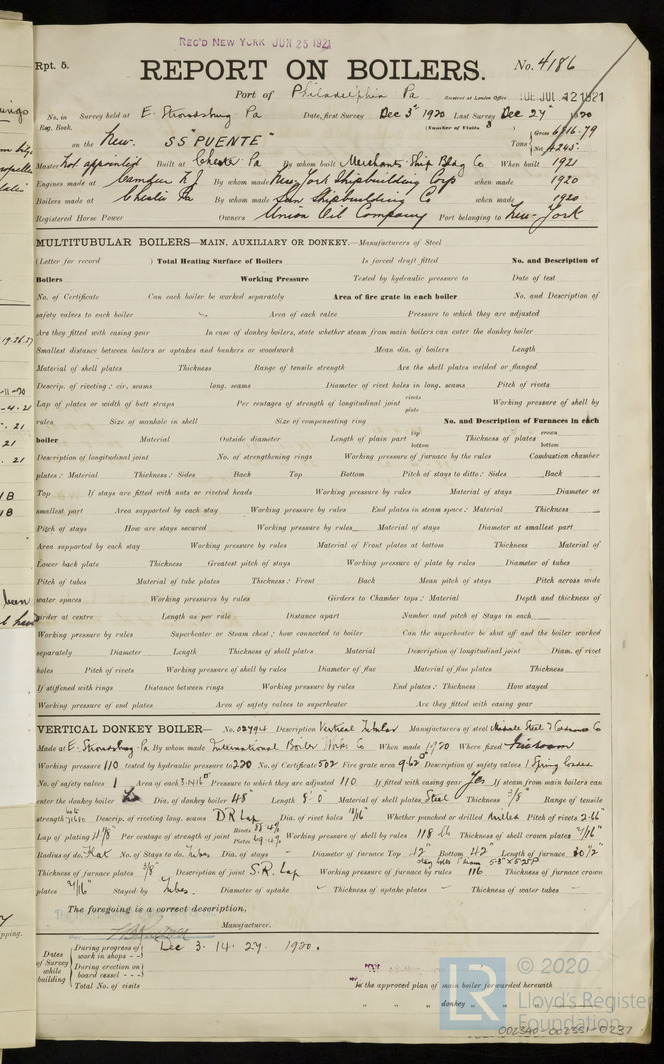 REC'D NEW YORK JUN 25 1921
Rpt. 5.
REPORT ON BOILERS.
No. 4186
Port of Philadelphia Pa
Received at London Office TUE. JUL. 12 1921
No. in Survey held at E. Stroudsburg Pa Date, first Survey Dec 3rd 1920 Last Survey Dec 27th 1920
Reg. Book. (Number of Visits 3)
on the New. SS "PUENTE" Tons Gross 6716.79 Net 4245.
Master Not appointed Built at Chester Pa By whom built Merchants Ship Bldg Co When built 1921
Engines made at Camden N J By whom made New-York Shipbuilding Corp when made 1920
Boilers made at Chester Pa By whom made Sun Shipbuilding Co when made 1920
Registered Horse Power Owners Union Oil Company Port belonging to New-York
MULTITUBULAR BOILERS—MAIN, AUXILIARY OR DONKEY.—Manufacturers of Steel
(Letter for record ) Total Heating Surface of Boilers Is forced draft fitted No. and Description of
Boilers Working Pressure Tested by hydraulic pressure to Date of test
No. of Certificate Can each boiler be worked separately Area of fire grate in each boiler No. and Description of
safety valves to each boiler Area of each valve Pressure to which they are adjusted
Are they fitted with easing gear In case of donkey boilers, state whether steam from main boilers can enter the donkey boiler
Smallest distance between boilers or uptakes and bunkers or woodwork Mean dia. of boilers Length
Material of shell plates Thickness Range of tensile strength Are the shell plates welded or flanged
Descrip. of riveting: cir. seams long. seams Diameter of rivet holes in long. seams Pitch of rivets
Lap of plates or width of butt straps Per centages of strength of longitudinal joint rivets plate Working pressure of shell by
rules Size of manhole in shell Size of compensating ring No. and Description of Furnaces in each
boiler Material Outside diameter Length of plain part top bottom Thickness of plates crown bottom
Description of longitudinal joint No. of strengthening rings Working pressure of furnace by the rules Combustion chamber
plates: Material Thickness: Sides Back Top Bottom Pitch of stays to ditto: Sides Back
Top If stays are fitted with nuts or riveted heads Working pressure by rules Material of stays Diameter at
smallest part Area supported by each stay Working pressure by rules End plates in steam space: Material Thickness
Pitch of stays How are stays secured Working pressure by rules Material of stays Diameter at smallest part
Area supported by each stay Working pressure by rules Material of Front plates at bottom Thickness Material of
Lower back plate Thickness Greatest pitch of stays Working pressure of plate by rules Diameter of tubes
Pitch of tubes Material of tube plates Thickness: Front Back Mean pitch of stays Pitch across wide
water spaces Working pressures by rules Girders to Chamber tops: Material Depth and thickness of
girder at centre Length as per rule Distance apart Number and pitch of Stays in each
Working pressure by rules Superheater or Steam chest; how connected to boiler Can the superheater be shut off and the boiler worked
separately Diameter Length Thickness of shell plates Material Description of longitudinal joint Diam. of rivet
holes Pitch of rivets Working pressure of shell by rules Diameter of flue Material of flue plates Thickness
If stiffened with rings Distance between rings Working pressure by rules End plates: Thickness How stayed
Working pressure of end plates Area of safety valves to superheater Are they fitted with easing gear
VERTICAL DONKEY BOILER— No. 02794 Description Vertical Tubular Manufacturers of steel
Made at E. Stroudsburg Pa By whom made International Boiler Works Co When made 1920 Where fixed
Working pressure 110 tested by hydraulic pressure to 220 No. of Certificate 502 Fire grate area 9.62 Description of safety valves 1 Spring loaded
No. of safety valves 1 Area of each 3.1416" Pressure to which they are adjusted 110 If fitted with easing gear Yes If steam from main boilers can
enter the donkey boiler Dia. of donkey boiler 48" Length 8'-0" Material of shell plates Steel Thickness 3/8" Range of tensile
strength Descrip. of riveting long. seams D R Lap Dia. of rivet holes 13/16" Whether punched or drilled drilled Pitch of rivets
Lap of plating 4 1/8" Per centage of strength of joint Rivets Plates Working pressure of shell by rules 118 lb Thickness of shell crown plates
Radius of do. Flat No. of Stays to do. Tubes Dia. of stays - Diameter of furnace Top 42" Bottom 42" Length of furnace 30 1/2"
Thickness of furnace plates 3/8" Description of joint S.R. Lap Working pressure of furnace by rules 116 Thickness of furnace crown
plates Stayed by Tubes. Diameter of uptake - Thickness of uptake plates - Thickness of water tubes -
The foregoing is a correct description,
Manufacturer.
Dates of Survey while building During progress of work in shops - - Dec 3. 14. 27. 1920.
During erection on board vessel - - -
Total No. of visits
Is the approved plan of main boiler forwarded herewith
" " " donkey " "
© 2020
LR
Lloyd's Register
Foundation
002340-002351-0237